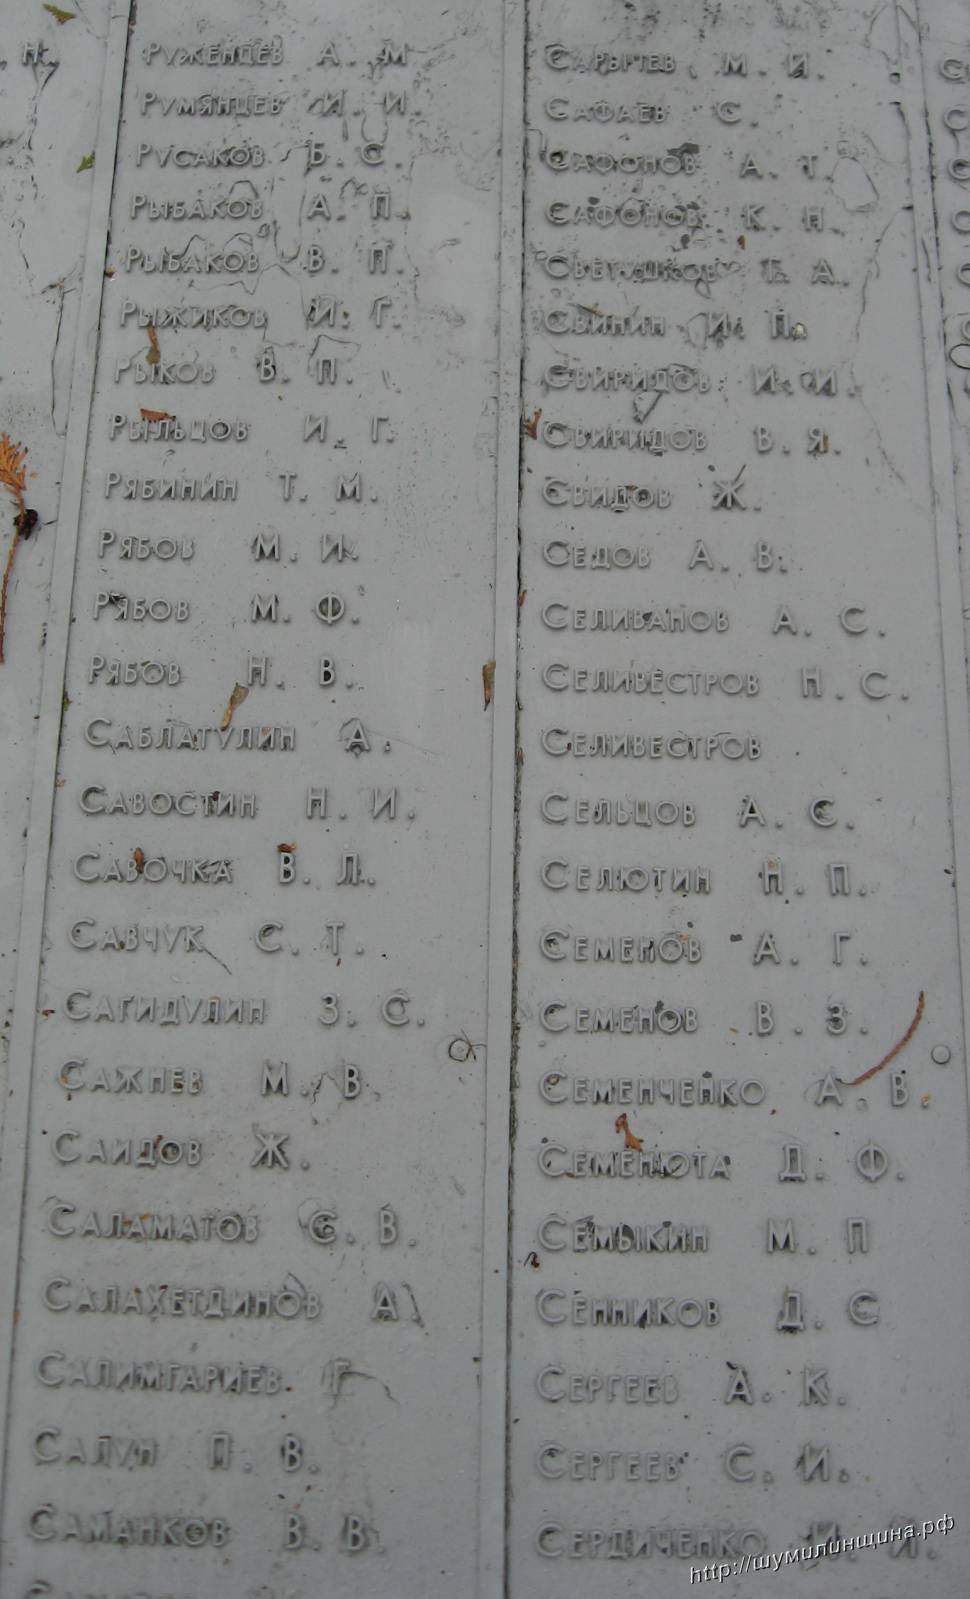 Н.
Руженцев А. М
Румянцев И. И.
Русаков Б. С.
Рыбаков А. П.
Рыбаков В. П.
Рыжиков И. Г.
Рыков В. П.
Рыльцов И. Г.
Рябинин Т. М.
Рябов М. И.
Рябов М. Ф.
Рябов Н. В.
Саблатулин А.
Савостин Н. И.
Савочка В. Л.
Савчук С. Т.
Сагидулин З. С.
Сажнев М. В.
Саидов Ж.
Саламатов С. В.
Салахетдинов А.
Салимгариев Г
Салун П. В.
Саманков В. В.
Сарычев М. И.
Сафаев С.
Сафонов А. Т.
Сафонов К. Н.
Светушков Т. А.
Свинин И. П.
Свиридов И. И.
Свиридов В. Я.
Свидов Ж.
Седов А. В.
Селиванов А. С.
Селивестров Н. С.
Селивестров
Сельцов А. С.
Селютин Н. П.
Семенов А. Г.
Семенов В. З.
Семенченко А. В.
Семенюта Д. Ф.
Семыкин М. П
Сенников Д. С
Сергеев А. К.
Сергеев С. И.
Сердиченко И. И.
http://шумилинщина.рф